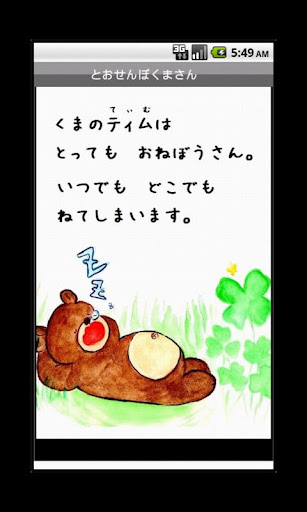 3G
5:49 AM
とおせんぼくまさん
てぃむ
くまのティムは
とっても おねぼうさん。
いつでも どこでも
ねてしまいます。
ZZZ